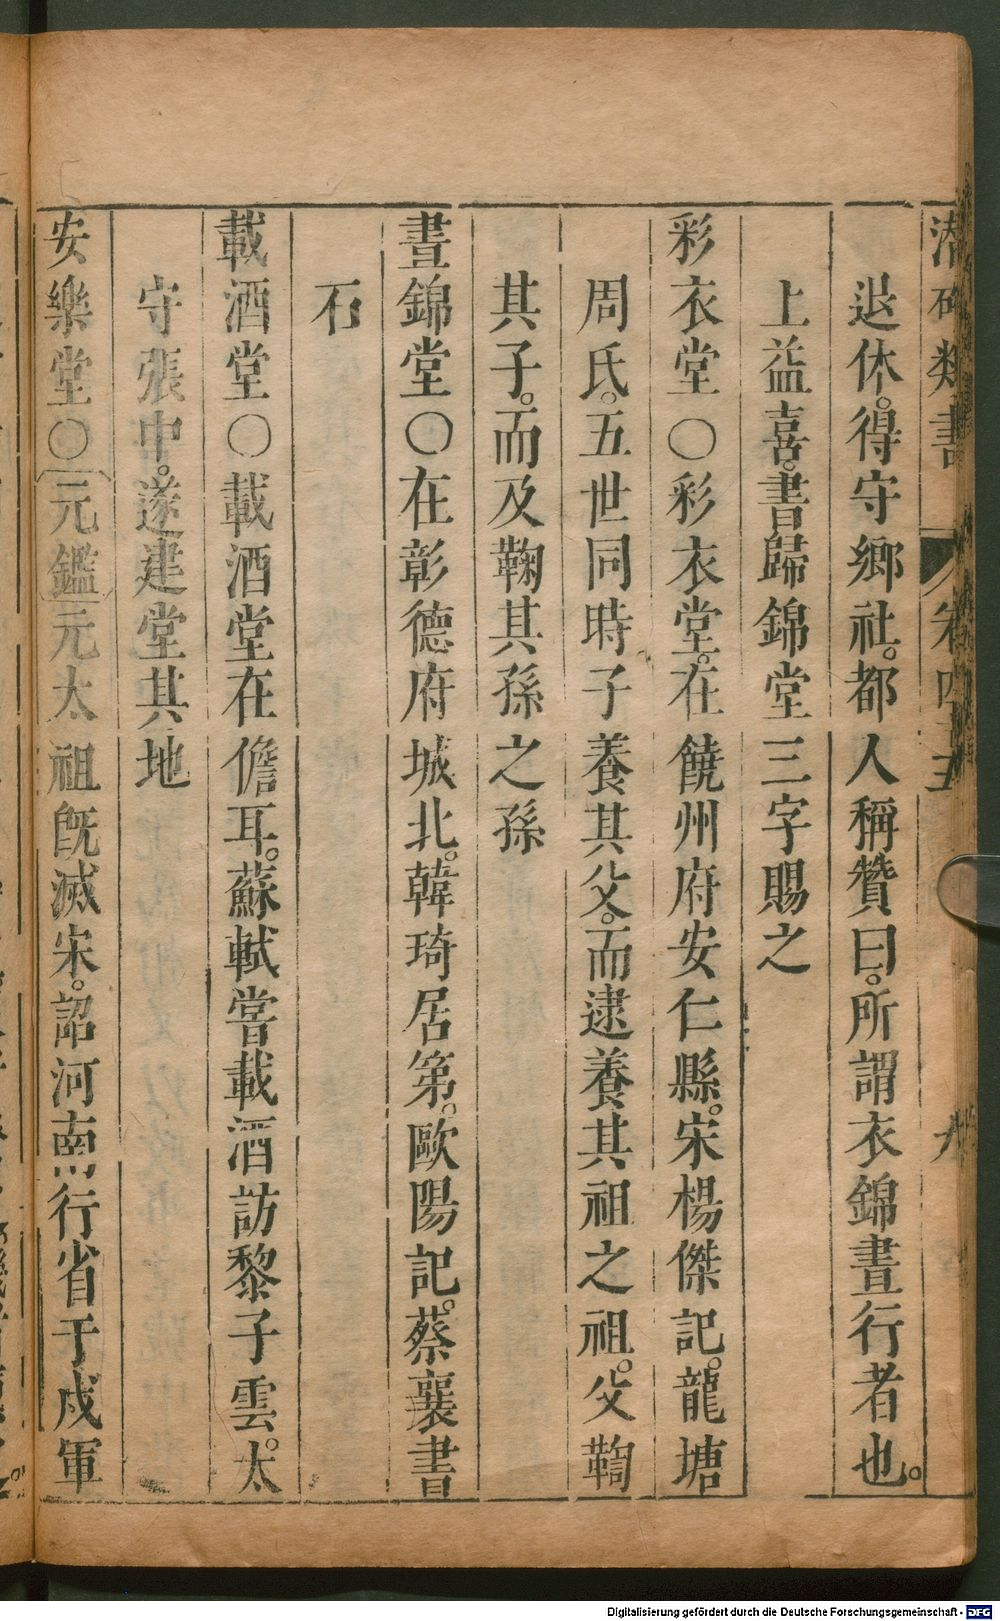 潛确類書 卷四十五 九
退休。得守鄉社。都人稱贊曰。所謂衣錦晝行者也。
上益喜。書歸錦堂三字賜之
彩衣堂〇彩衣堂。在饒州府安仁縣。宋楊傑記。龍塘
周氏。五世同時子養其父。而逮養其祖之祖。父鞫
其子。而及鞠其孫之孫
晝錦堂〇在彰德府城北。韓琦居第。歐陽記。蔡襄書
石
載酒堂〇載酒堂在儋耳。蘇軾嘗載酒訪黎子雲。太
守張中。遂建堂其地
安樂堂〇元鑑元太祖既滅宋。詔河南行省于戍軍
Digitalisierung gefördert durch die Deutsche Forschungsgemeinschaft - DFG